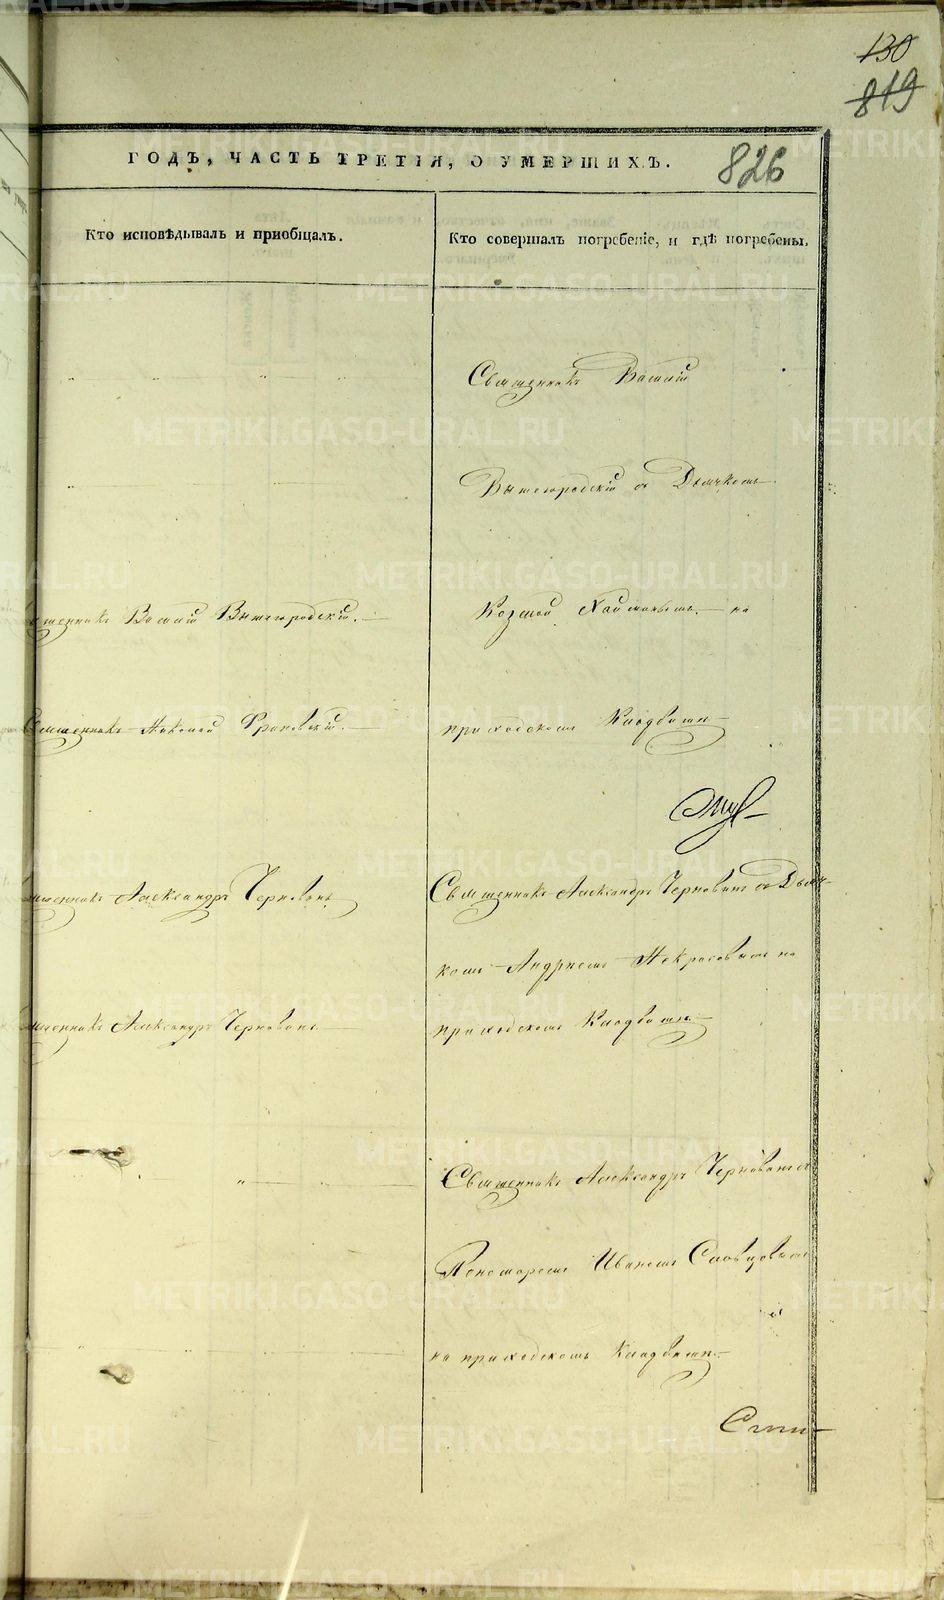 130
819
826
ГОДЪ, ЧАСТЬ ТРЕТІЯ, О УМЕРШИХЪ.
Кто исповѣдывалъ и пріобщалъ.
Кто совершалъ погребеніе, и гдѣ погребены.
Священникъ Василій
Вышегородскій съ Дьячкомъ
Козмой на
приходскомъ Кладбищѣ
Священникъ Василій Вышегородскій.
Священникъ Николай
Священникъ Александръ Черновинъ
Священникъ Александръ Черновинъ
Священникъ Александръ Черновинъ съ Дьяч-
комъ Андреемъ Некрасовымъ на
приходскомъ Кладбищѣ
Священникъ Александръ Черновинъ съ
Пономаремъ Иваномъ Словцовымъ
на приходскомъ Кладбищѣ
METRIKI.GASO-URAL.RU